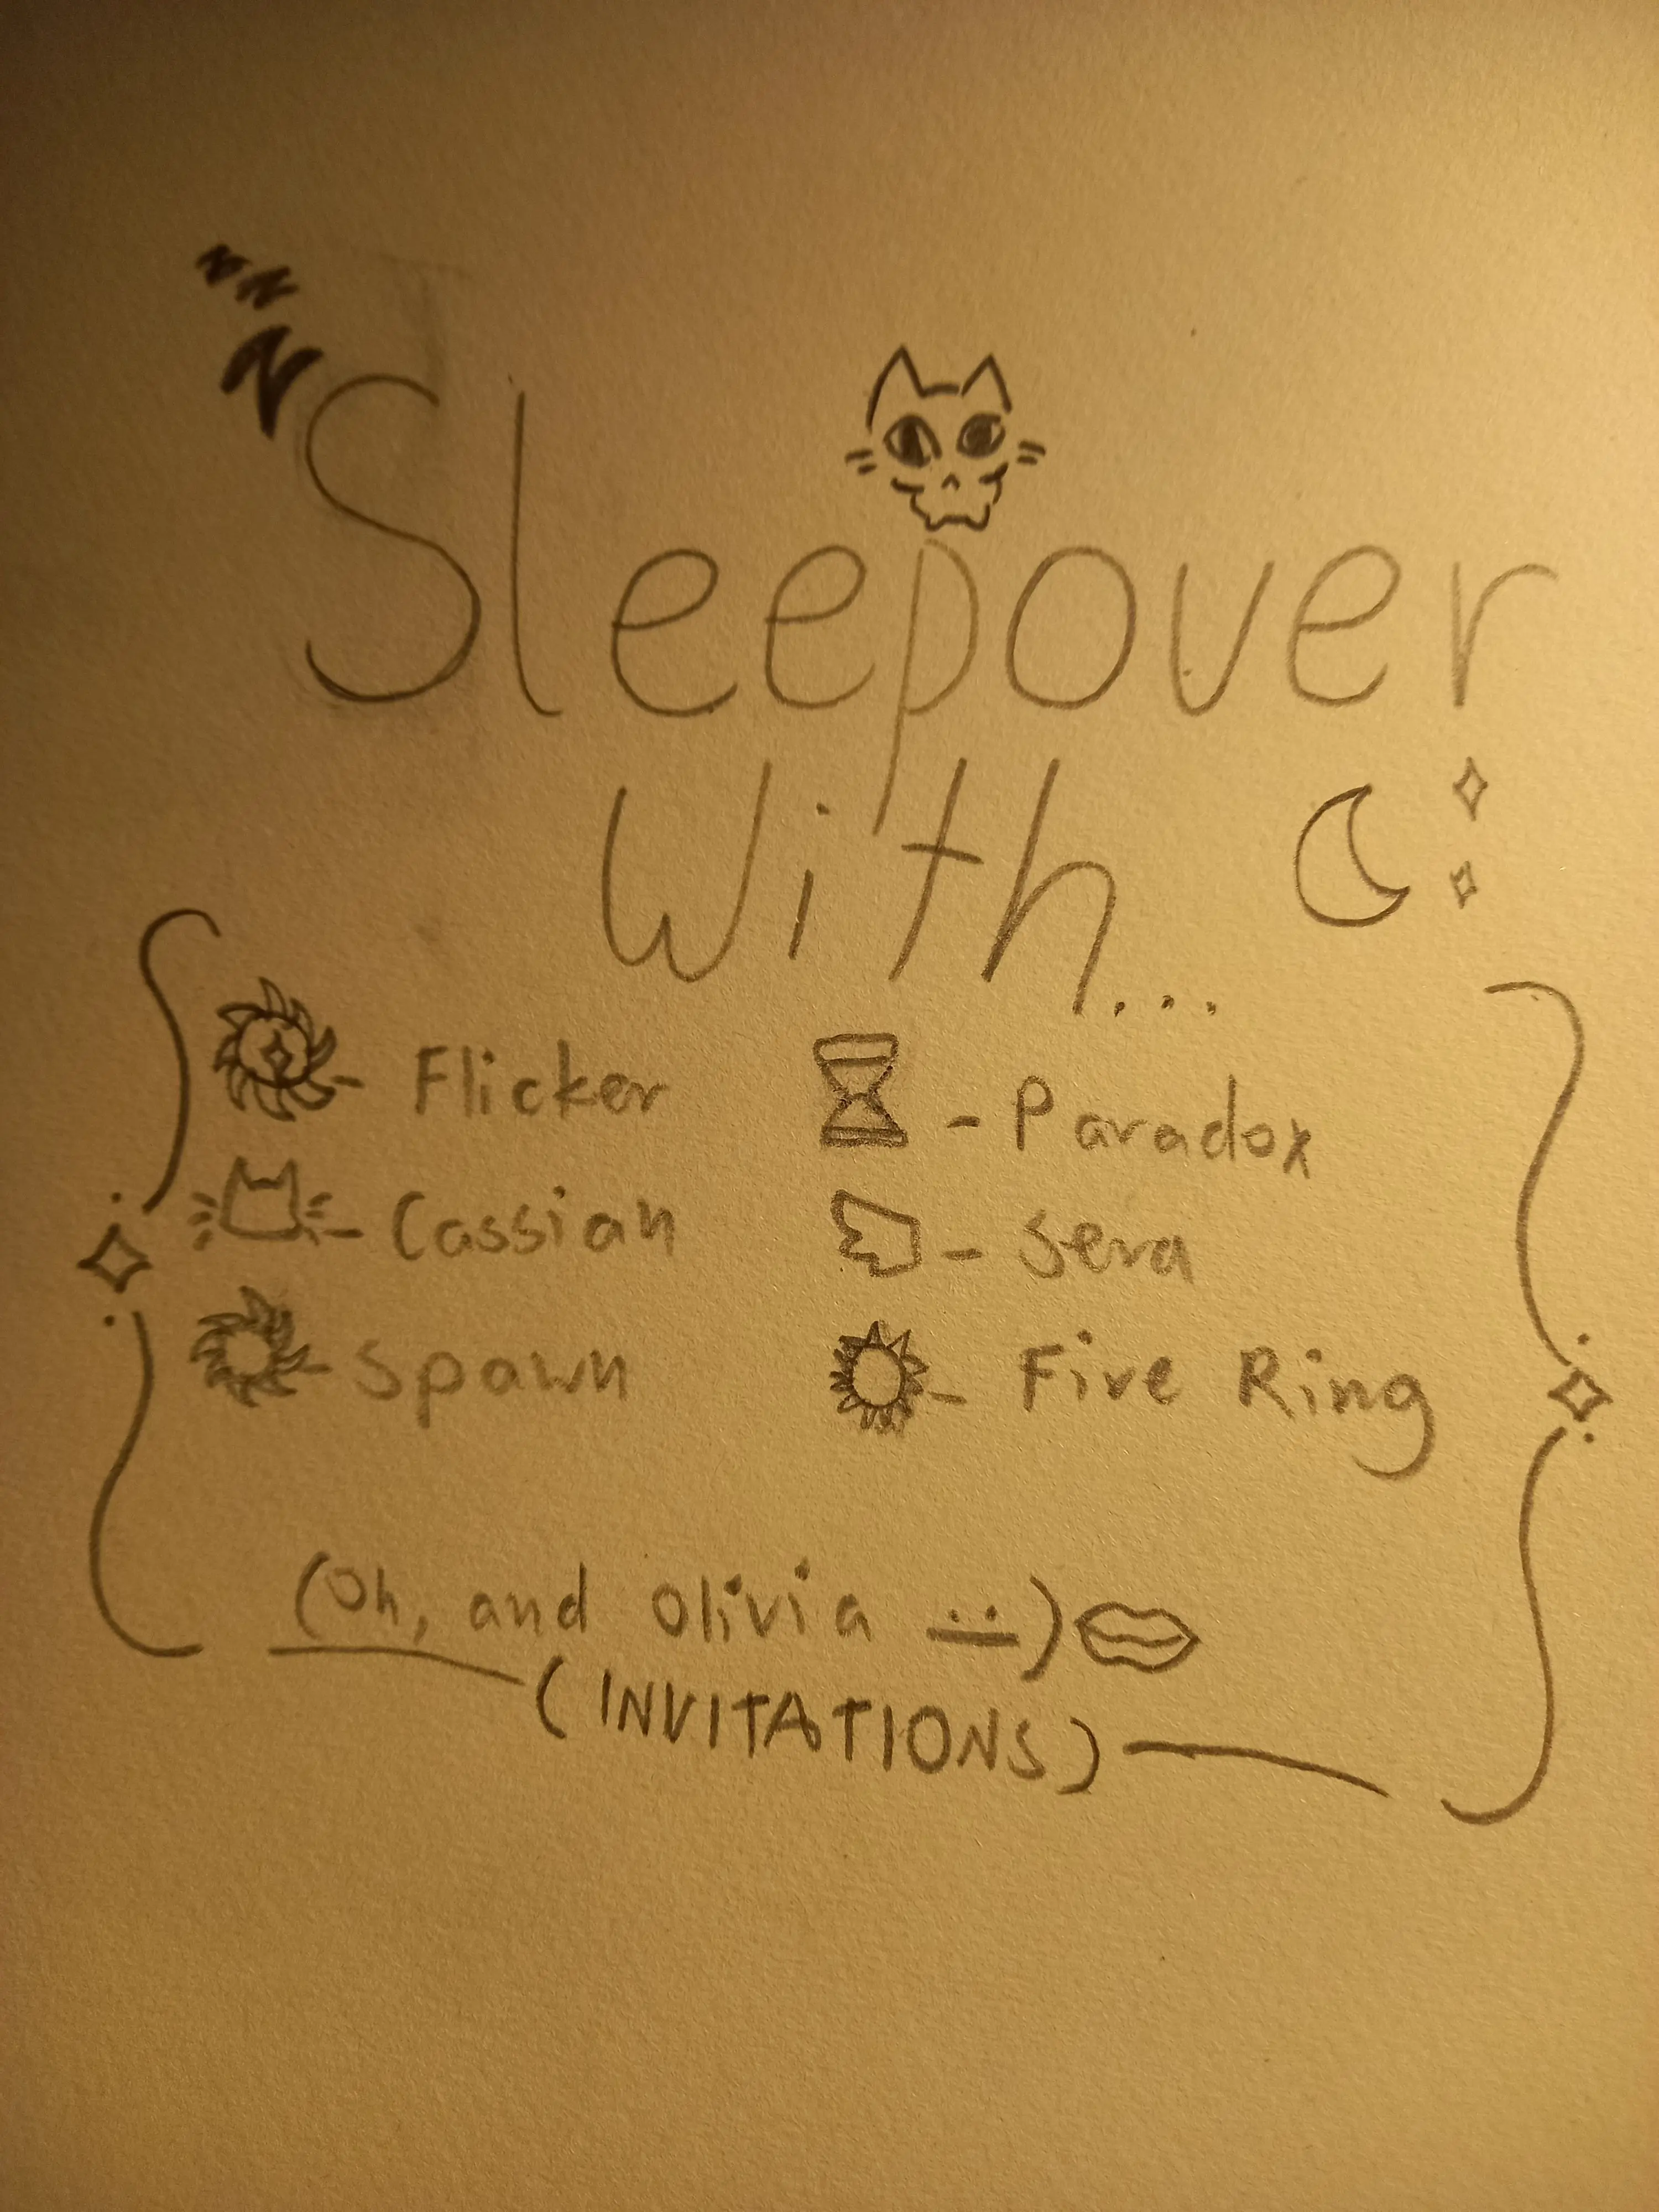 zzz
Sleepover
With...
- Flicker
- Paradox
- Cassian
- Sera
- Spawn
- Fire Ring
(Oh, and Olivia :|)
(INVITATIONS)